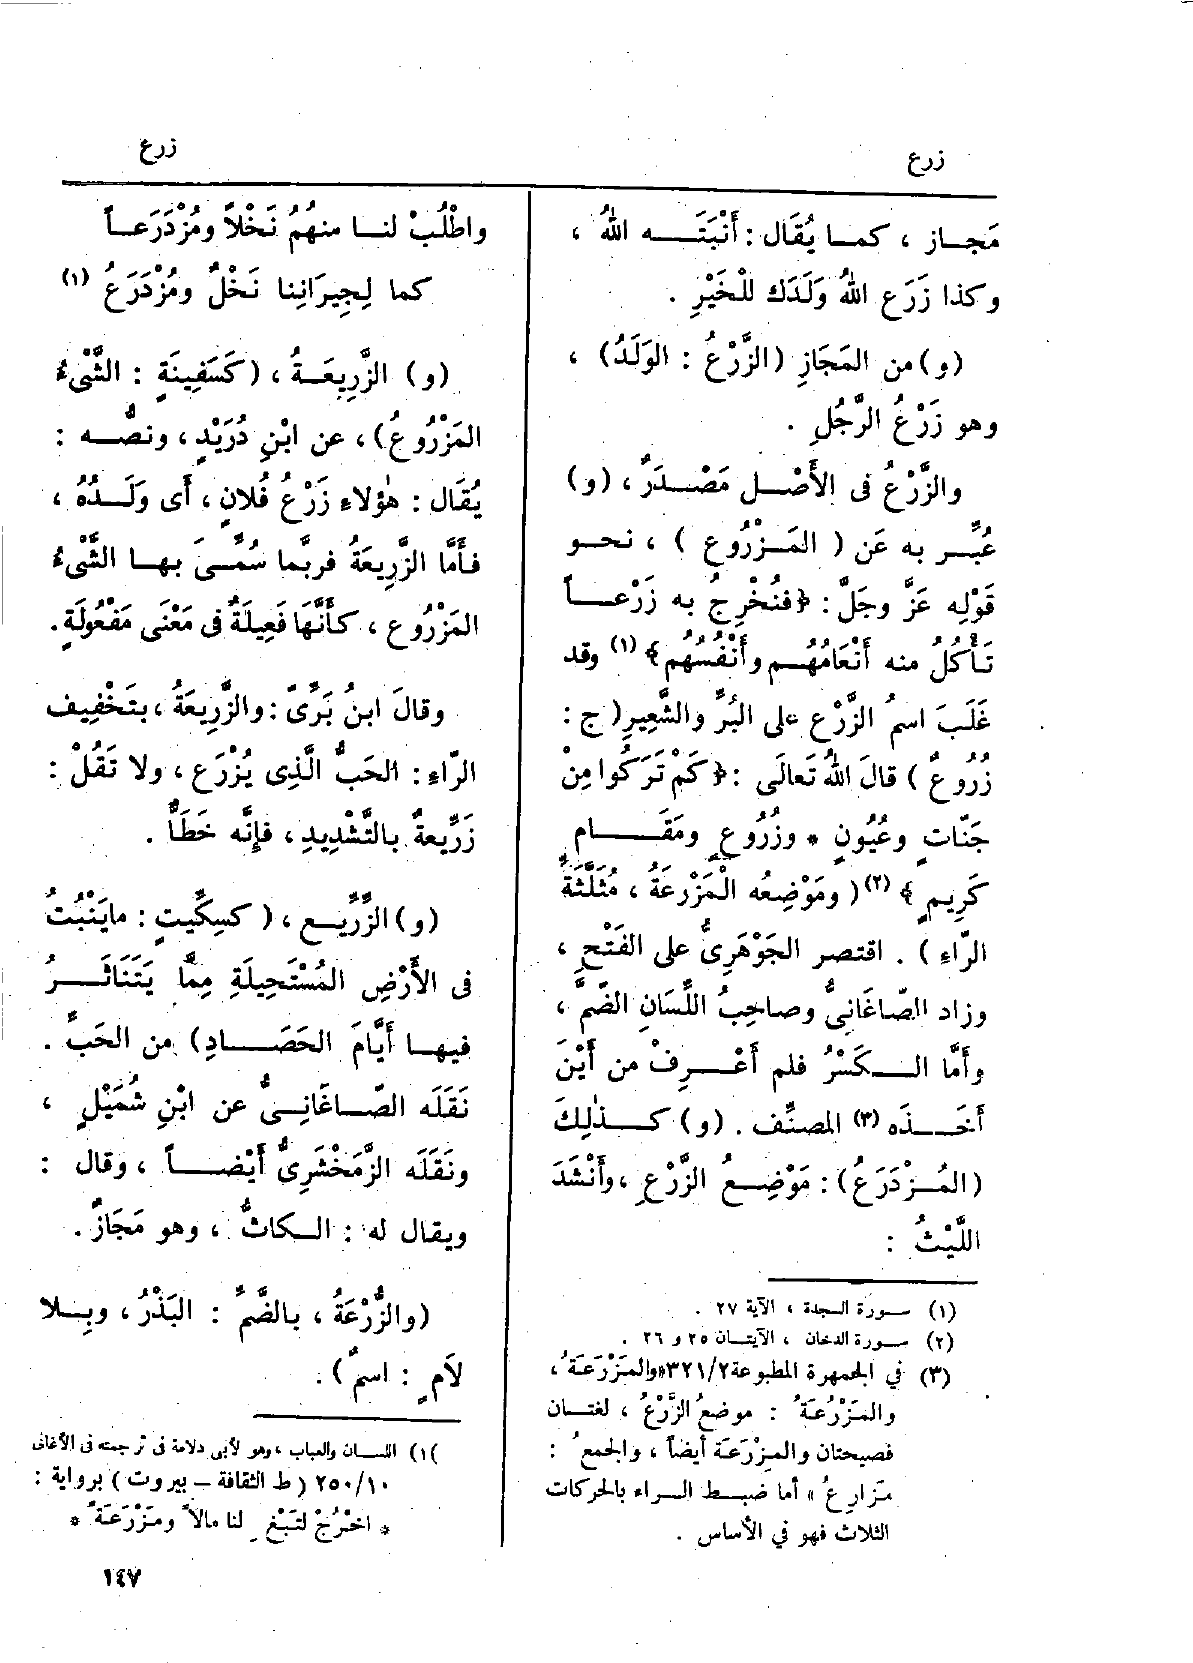 زرع
زرع
مَجـاز ، كمـا يُقَال : أَنْبَتَـه اللهُ ،
وكذا زَرَع اللهُ وَلَدَك للْخَيْرِ .
(و) من المَجَازِ (الزَّرْعُ : الوَلَدُ) ،
وهو زَرْعُ الرَّجُلِ .
والزَّرْعُ فى الأَصْل مَصْدَرٌ ، (و)
عُبِّر به عَن ( المَزْرُوعِ ) ، نحو
قَوْلِه عَزَّ وجَلَّ : ﴿فنُخْرِجُ به زَرْعاً
تَأْكُلُ منه أَنْعَامُهُم وأَنْفُسُهُم﴾ (١) وقد
غَلَبَ اسمُ الزَّرْعِ على البُرِّ والشَّعِيرِ (ج :
زُرُوعٌ) قالَ اللهُ تَعالَى : ﴿كَمْ تَرَكُوا مِنْ
جَنّاتٍ وعُيُونٍ * وزُرُوعٍ ومَقَامٍ
كَرِيمٍ ﴾ (٢) ( ومَوْضِعُه الْمَزْرعَةُ ، مُثَلَّثَةَ
الرّاءِ ) . اقتصر الجَوْهَرِىُّ على الفَتْحِ ،
وزاد الصّاغَانِىُّ وصاحِبُ اللِّسَانِ الضَّمَّ ،
وأَمَّا الكَسْرُ فلم أَعْرِفْ من أَيْنَ
أَخَذَه (٣) المصنِّف . (و) كذٰلِكَ
(المُزْدَرَعُ) : مَوْضِعُ الزَّرْعِ ، وأَنْشَدَ
اللَّيْثُ :
(١) سورة السجدة ، الآية ٢٧ .
(٢) سورة الدخان ، الآيتان ٢٥ و ٢٦ .
(٣) في الجمهرة المطبوعة ٣٢١/٢ «والمَزْرَعَةُ ،
والمَزْرُعَةُ : موضعُ الزَّرْعُ ، لغتان
فصيحتان والمزْرَعَة أيضاً ، والجمعُ :
مَزارعُ » أما ضبط الراء بالحركات
الثلاث فهو في الأساس .
واطْلُبْ لنا منهُمُ نَخْلاً ومُزْدَرَعاً
كما لِجِيرَانِنا نَخْلٌ ومُزْدَرَعُ (١)
(و) الزَّرِيعَةُ ، (كَسَفِينَةٍ : الشَّىْءُ
المَزْرُوعُ) ، عن ابْنِ دُرَيْدٍ ، ونصُّه :
يُقَال : هٰؤلاءِ زَرْعُ فُلانٍ ، أَى وَلَدُهُ ،
فأَمَّا الزَّرِيعَةُ فربَّما سُمِّىَ بها الشَّىْءُ
المَزْرُوع ، كأَنَّهَا فَعِيلَةٌ فى مَعْنَى مَفْعُولَةٍ .
وقالَ ابنُ بَرِّىّ : والزَّرِيعَةُ ، بتَخْفِيف
الرّاءِ : الحَبُّ الَّذِى يُزْرَع ، ولا تَقُلْ :
زَرِّيعةٌ بالتَّشْدِيدِ ، فإِنَّه خَطَأٌ .
(و) الزِّرِّيع ، ( كسِكِّيتٍ : مايَنْبُتُ
فى الأَرْضِ المُسْتَحِيلَةِ مِمَّا يَتَنَاثَرُ
فيها أَيَّامَ الحَصَادِ) من الحَبِّ .
نَقَلَه الصّاغَانِىُّ عن ابْنِ شُمَيْلٍ ،
ونَقَلَه الزَّمَخْشَرِىُّ أَيْضاً ، وقال :
ويقال له : الكاثُّ ، وهو مَجَازٌ .
(والزُّرْعَةُ ، بالضَّمِّ : البَذْرُ ، وبِلا
لاَمٍ : اسمٌ) .
(١) اللسان والعباب ، وهو لأبى دلامة فى ترجمته فى الأغانى
٢٥٠/١٠ ( ط الثقافة – بيروت ) برواية :
* اخْرُجْ لتَبْغِ لنا مالاً ومَزْرَعَةً *
١٤٧